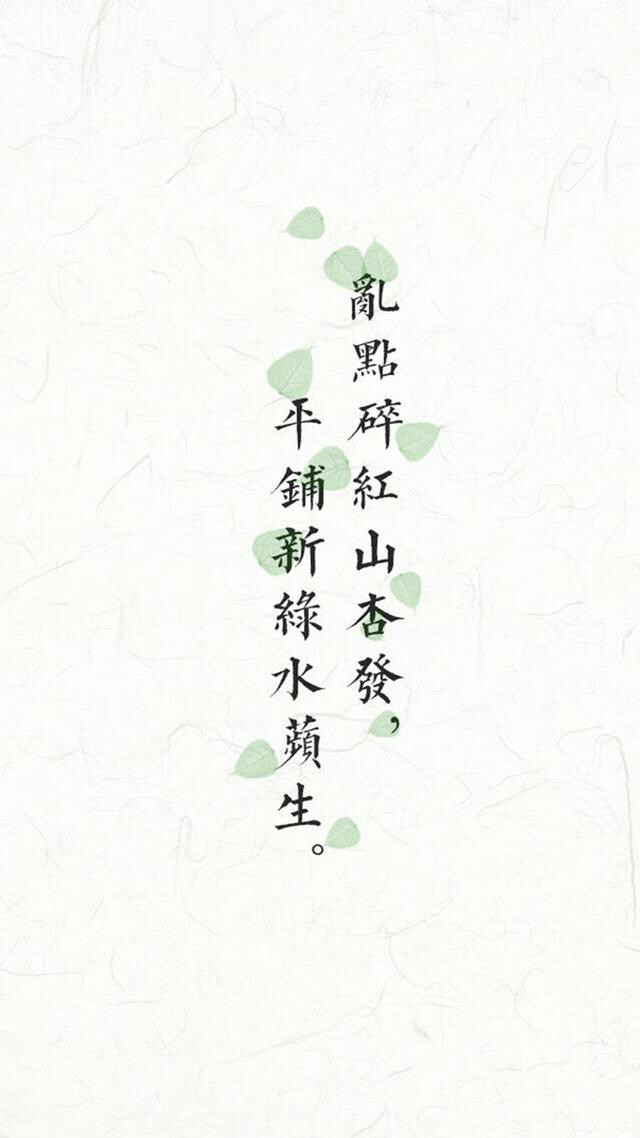 亂點碎紅山杏發，
平鋪新綠水蘋生。